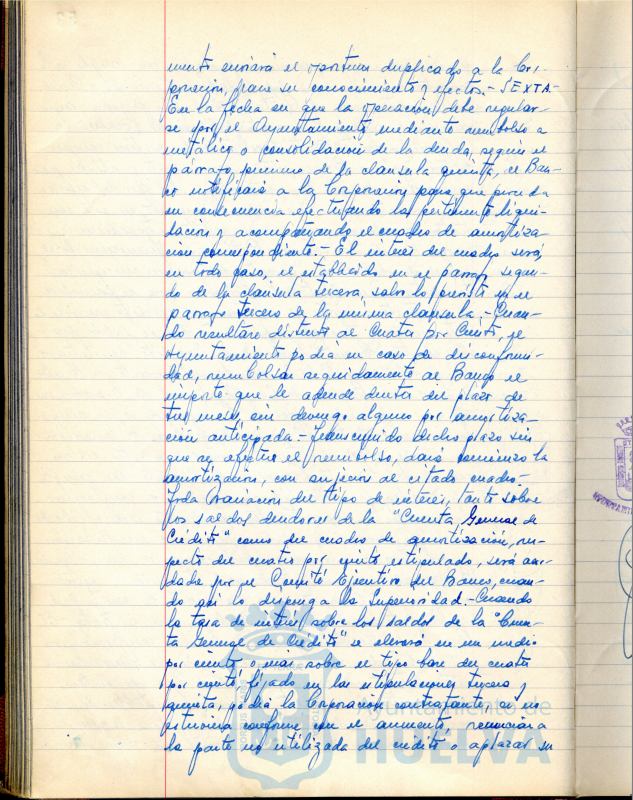 mento enviará el oportuno duplicado a la Cor-
poración, para su conocimiento y efectos.- SEXTA.-
En la fecha en que la operación debe regular-
se por el Ayuntamiento mediante reembolso a
metálico o consolidación de la deuda, según el
párrafo primero de la clausula quinta, el Ban-
co notificará a la Corporación para que proceda
en consecuencia efectuando la pertinente liqui-
dación y acompañando el cuadro de amortiza-
ción correspondiente.- El interés del cuadro será,
en todo caso, el establecido en el párrafo segun-
do de la clausula tercera, salvo lo previsto en el
párrafo tercero de la misma clausula.- Cuan-
do resultare distinto al Cuatro por Ciento, el
Ayuntamiento podrá en caso de disconformi-
dad, reembolsar seguidamente al Banco el
importe que le adeude dentro del plazo de
tres meses, sin devengo alguno por amortiza-
ción anticipada.- Transcurrido dicho plazo sin
que se efectúe el reembolso, dará comienzo la
amortización, con sujeción al citado cuadro.-
Toda variación del tipo de interés, tanto sobre
los saldos deudores de la "Cuenta General de
Crédito" como del cuadro de amortización, res-
pecto del cuatro por ciento estipulado, será acor-
dada por el Comité Ejecutivo del Banco, cuan-
do así lo disponga la Superioridad.- Cuando
la tasa de interés sobre los saldos de la "Cuen-
ta General de Crédito" se elevara en un medio
por ciento o más sobre el tipo base del cuatro
por ciento fijado en las estipulaciones tercera y
quinta, podrá la Corporación contratante, si no
estuviera conforme con el aumento, renunciar a
la parte no utilizada del crédito o aplazar su
Ayuntamiento de
HUELVA